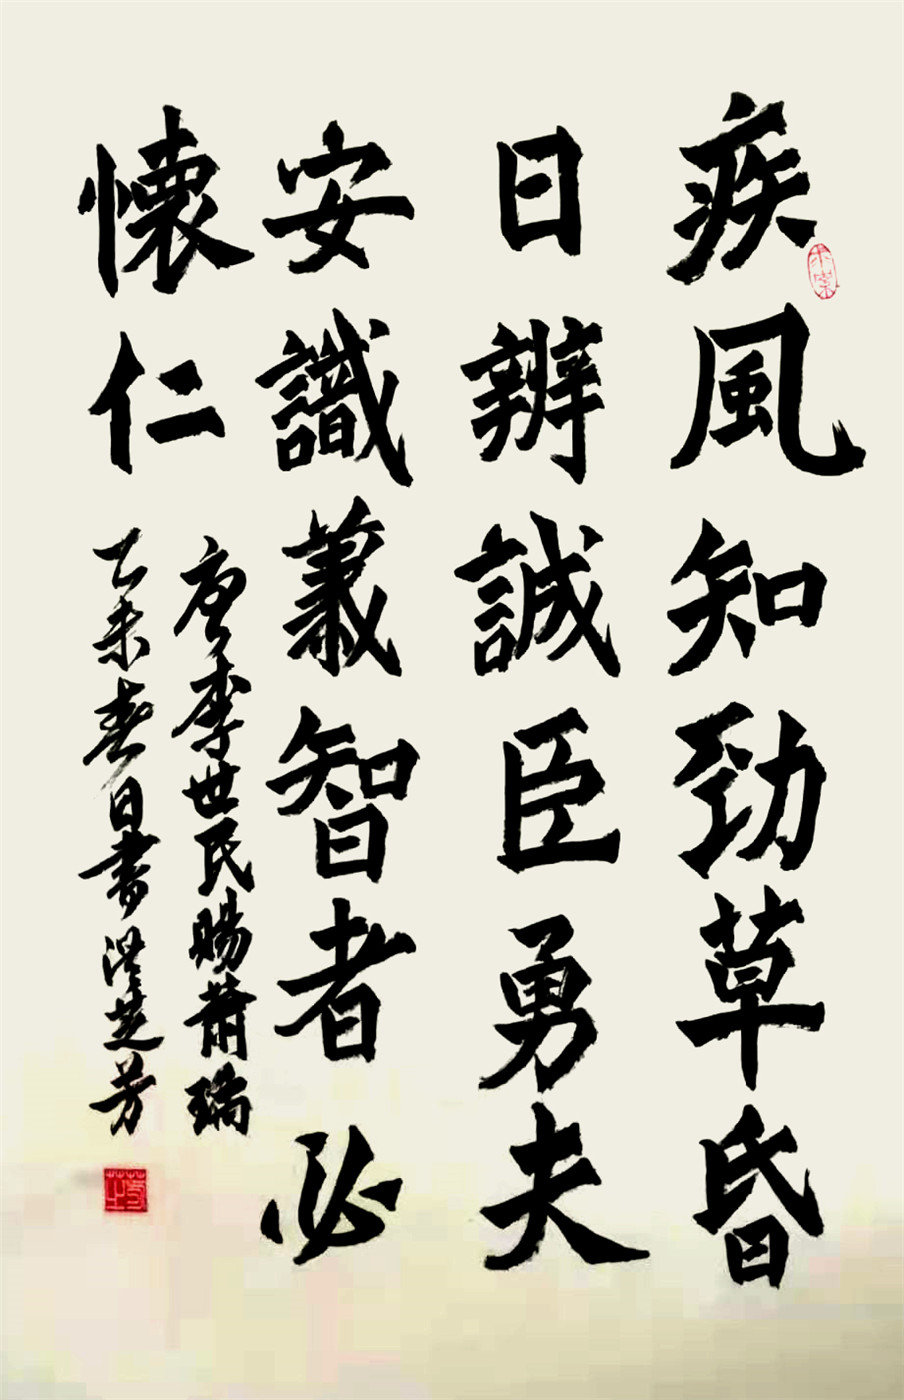 疾風知勁草昏
日辨誠臣勇夫
安識義智者必
懷仁
唐李世民賜蕭瑀
乙未春日書洪芝芳